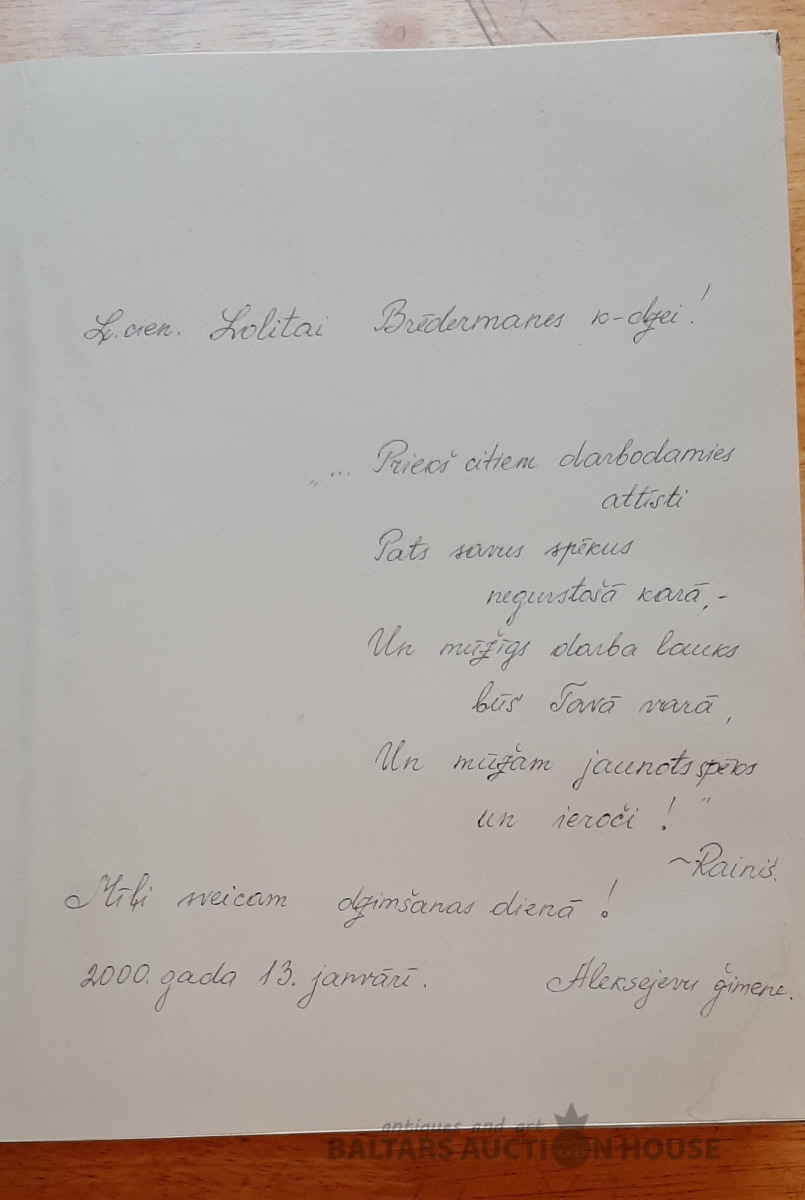 Ļ. cien. Lolitai Brēdermanes k-dzei!
„... Priekš citiem darbodamies
attīsti
Pats savus spēkus
negurstošā karā, -
Un mūžīgs darba lauks
būs Tavā varā,
Un mūžam jaunots spēks
un ieroči!"
~ Rainis.
Mīļi sveicam dzimšanas dienā!
2000. gada 13. janvārī. Aleksejevu ģimene.
antiques and art
BALTARS AUCTION HOUSE